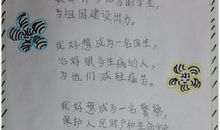 为祖国建设出力。
我好想成为一名医生,
治好很多生病的人,
为他们减轻痛苦。
我好想成为一名警察,
保护人民财产和生命安全